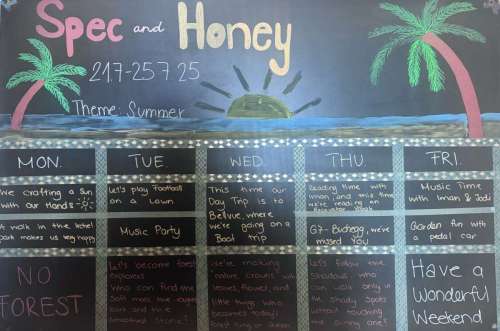 Spec and Honey
21.7-25.7.25
Theme: Summer
MON. TUE. WED. THU. FRI.
We crafting a sun
with our Hands
walk in the
park makes us very happy
NO
FOREST
Let's play Football
on a Lawn
Music Party
Let's become forest
explorers
Who can find the
Soft moss the
bark and the
smallest stone?
This time our
Day Trip is to
Bellvue, where
we're going on a
Boat trip
We're making
nature crowns with
leaves, flower, and
little things Who
becomes today's
forest king or queen
Reading time with
Iman and this time
we're reading on
GT-Buchegg, we've
missed You
Let's follow the
shadows - who
can walk only in
the shady spots
without touching
a sunny one?
Music Time
with Iman & Jodi
Garden fun with
a pedal car
Have a
Wonderful
Weekend